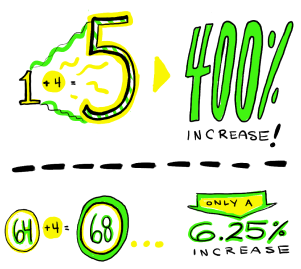 1 +4 = 5
400%
INCREASE!
64 +4 = 68 ...
ONLY A
6.25%
INCREASE